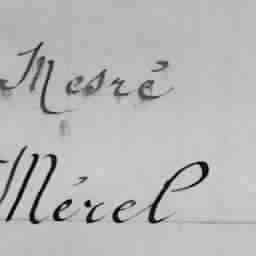 Mesré
Mérel